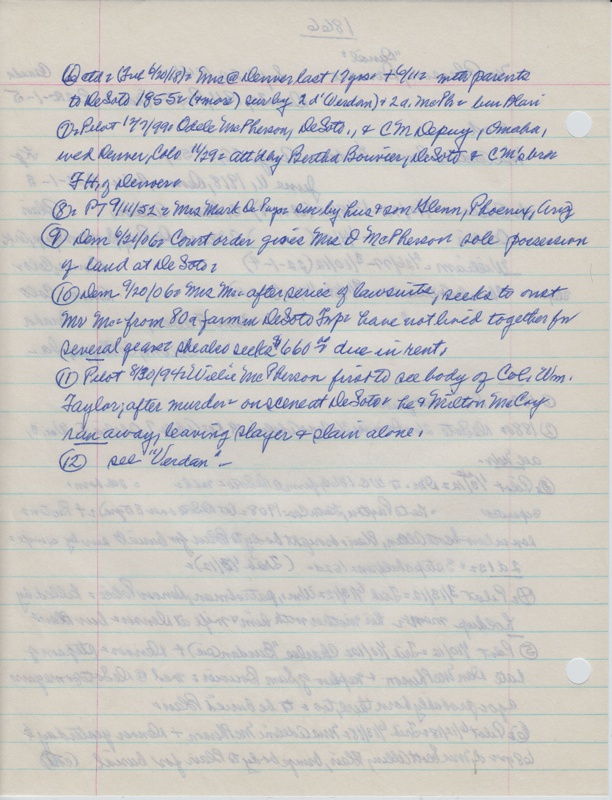 1866
⑥ cttd = (Fri 6/20/18) = Mrs @ Denver last 17 yrs = + 6/11 = with parents
to DeSoto 1855 = (+ more) sur by 2 d (Verdan) & 2 a. McPh = bur Blair
⑦ = Pilot 12/7/99 = Odele McPherson, DeSoto, & C M Depuy, Omaha,
wed Denver, Colo 11/29 = att day Bertha Bouvier, DeSoto & C M's bro
F H, of Denver =
⑧ = PT 9/11/52 = Mrs Mark De Puy = sur by hus & son Glenn, Phoenix, Ariz
⑨ Dem 6/21/06 = Court order gives Mrs O McPherson sole possession
of land at DeSoto =
⑩ Dem 9/20/06 = Mrs Mc = after series of lawsuits, seeks to oust
Mr Mc = from 80 a farm in DeSoto Twp = have not lived together for
several years = she also seeks $660 due in rent,
⑪ Pilot 8/30/94 = Willie McPherson first to see body of Col. Wm.
Taylor, after murder = on scene at DeSoto = he & Milton McCoy
run away, leaving slayer & slain alone.
⑫ see "Verdan" —